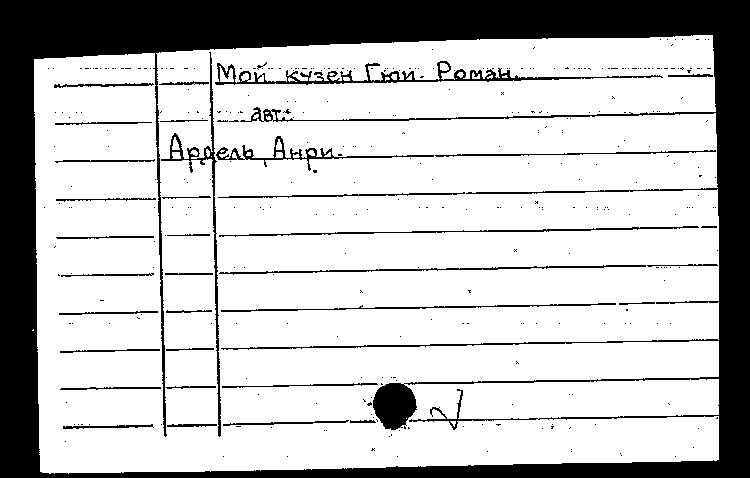 Мой кузен Гюи. Роман.
авт.:
Ардель, Анри.